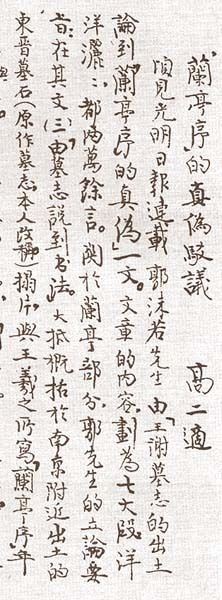 “蘭亭序”的真偽駁議　　高二適
頃見光明日報連載郭沫若先生由“王謝墓志的出土
論到“蘭亭序”的真偽”一文。文章的内容，劃為七大段，洋
洋灑灑，都為萬餘言。関於蘭亭部分，郭先生的立論要
旨：在其文(三)由墓志說到书法。大抵概括於南京附近出土的
東晉墓石(原作墓志，本人改稱)搨片，與王羲之所寫“蘭亭序”年